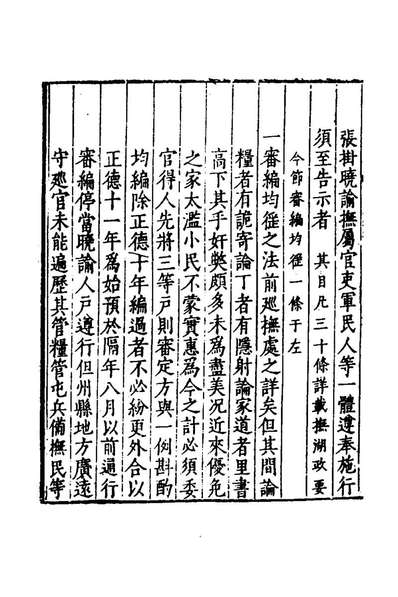 張掛曉諭撫屬官吏軍民人等一體遵奉施行
須至告示者　其目凡三十條詳載撫湖政要
今節審編均徭一條于左
一審編均徭之法前廵撫處之詳矣但其間論
糧者有詭寄論丁者有隱射論家道者里書
高下其手奸弊頗多未爲盡美况近來優免
之家太濫小民不蒙實惠爲今之計必須委
官得人先將三等户則審定方與一例斟酌
均編除正德十年編過者不必紛更外合以
正德十一年爲始預於隔年八月以前通行
審編停當曉諭人戸遵行但州縣地方廣遠
守廵官未能遍歷其管糧管屯兵備撫民等